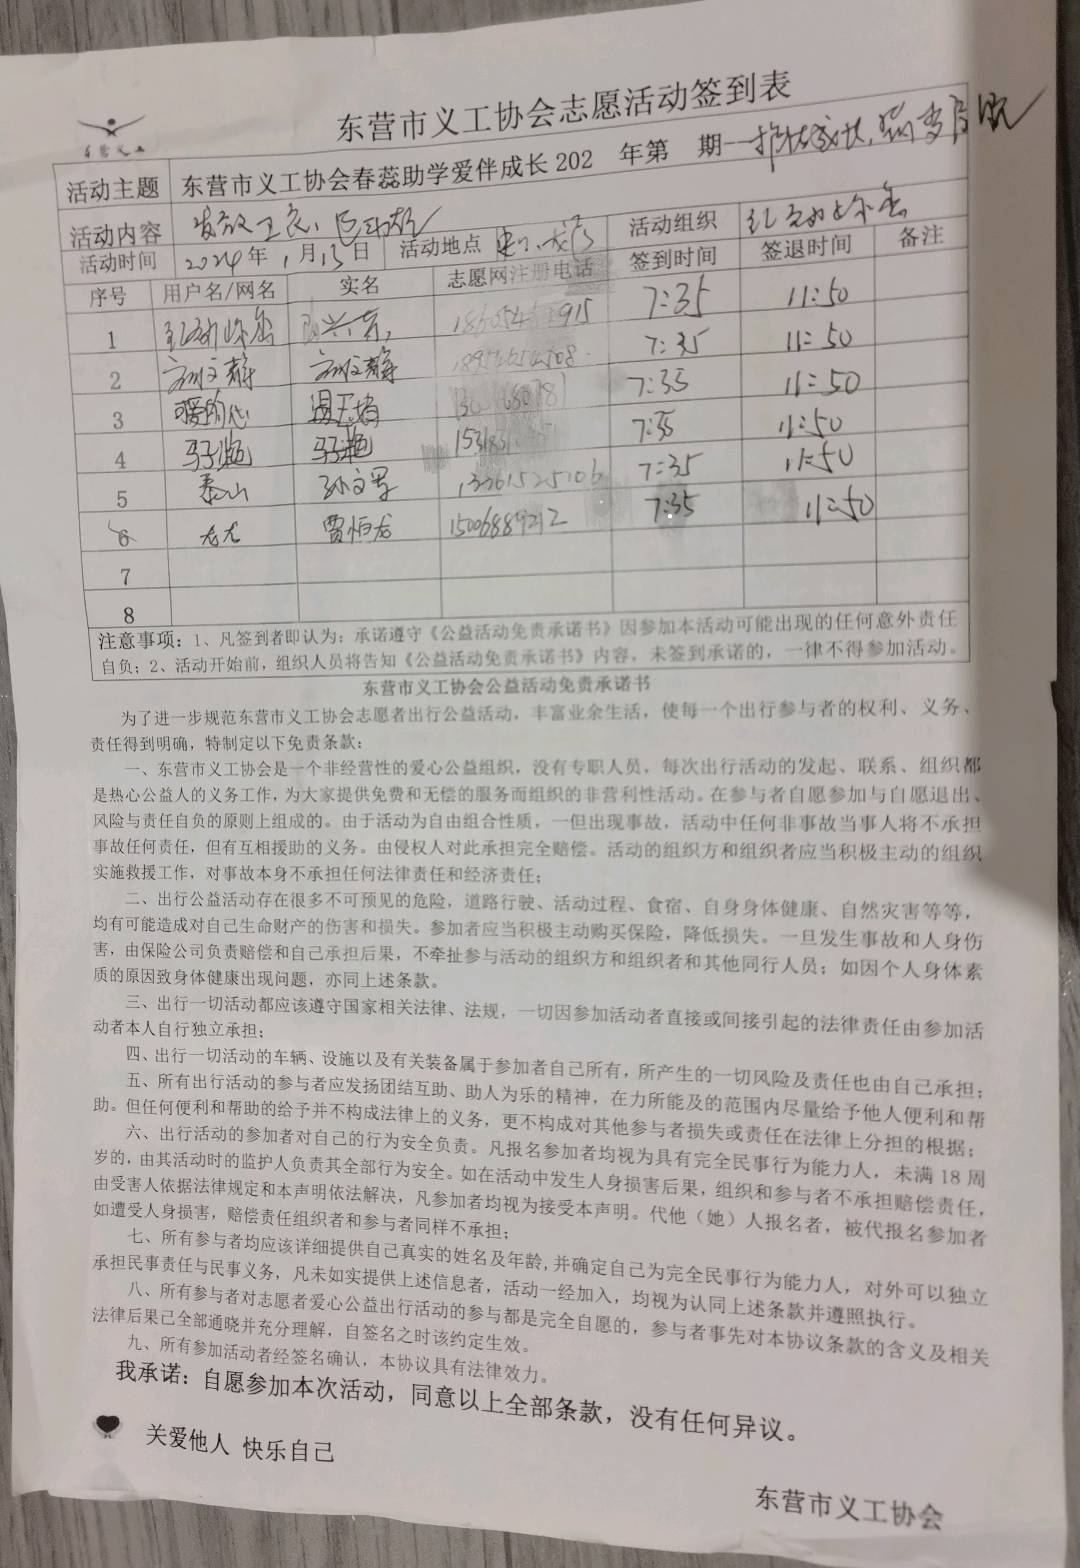 东营市义工协会志愿活动签到表
东营义工
活动主题 东营市义工协会春蕊助学爱伴成长 202 年第 期一
活动内容 活动组织
活动时间 2024年 1月13日 活动地点 签到时间 签退时间 备注
序号 用户名/网名 实名 志愿网注册电话
1 7:35 11:50
2 7:35 11:50
3 7:35 11:50
4 7:35 11:50
5 泰山 7:35 11:50
6 龙龙 贾恒龙 15006889212 7:35 11:50
7
8
注意事项：1、凡签到者即认为：承诺遵守《公益活动免责承诺书》因参加本活动可能出现的任何意外责任
自负；2、活动开始前，组织人员将告知《公益活动免责承诺书》内容，未签到承诺的，一律不得参加活动。
东营市义工协会公益活动免责承诺书
为了进一步规范东营市义工协会志愿者出行公益活动，丰富业余生活，使每一个出行参与者的权利、义务、
责任得到明确，特制定以下免责条款：
一、东营市义工协会是一个非经营性的爱心公益组织，没有专职人员，每次出行活动的发起、联系、组织都
是热心公益人的义务工作，为大家提供免费和无偿的服务而组织的非营利性活动。在参与者自愿参加与自愿退出、
风险与责任自负的原则上组成的。由于活动为自由组合性质，一但出现事故，活动中任何非事故当事人将不承担
事故任何责任，但有互相援助的义务。由侵权人对此承担完全赔偿。活动的组织方和组织者应当积极主动的组织
实施救援工作，对事故本身不承担任何法律责任和经济责任；
二、出行公益活动存在很多不可预见的危险，道路行驶、活动过程、食宿、自身身体健康、自然灾害等等，
均有可能造成对自己生命财产的伤害和损失。参加者应当积极主动购买保险，降低损失。一旦发生事故和人身伤
害，由保险公司负责赔偿和自己承担后果，不牵扯参与活动的组织方和组织者和其他同行人员；如因个人身体素
质的原因致身体健康出现问题，亦同上述条款。
三、出行一切活动都应该遵守国家相关法律、法规，一切因参加活动者直接或间接引起的法律责任由参加活
动者本人自行独立承担；
四、出行一切活动的车辆、设施以及有关装备属于参加者自己所有，所产生的一切风险及责任也由自己承担；
五、所有出行活动的参与者应发扬团结互助、助人为乐的精神，在力所能及的范围内尽量给予他人便利和帮
助。但任何便利和帮助的给予并不构成法律上的义务，更不构成对其他参与者损失或责任在法律上分担的根据；
六、出行活动的参加者对自己的行为安全负责。凡报名参加者均视为具有完全民事行为能力人，未满 18 周
岁的，由其活动时的监护人负责其全部行为安全。如在活动中发生人身损害后果，组织和参与者不承担赔偿责任，
由受害人依据法律规定和本声明依法解决，凡参加者均视为接受本声明。代他（她）人报名者，被代报名参加者
如遭受人身损害，赔偿责任组织者和参与者同样不承担；
七、所有参与者均应该详细提供自己真实的姓名及年龄，并确定自己为完全民事行为能力人，对外可以独立
承担民事责任与民事义务，凡未如实提供上述信息者，活动一经加入，均视为认同上述条款并遵照执行。
八、所有参与者对志愿者爱心公益出行活动的参与都是完全自愿的，参与者事先对本协议条款的含义及相关
法律后果已全部通晓并充分理解，自签名之时该约定生效。
九、所有参加活动者经签名确认，本协议具有法律效力。
我承诺：自愿参加本次活动，同意以上全部条款，没有任何异议。
关爱他人 快乐自己
东营市义工协会